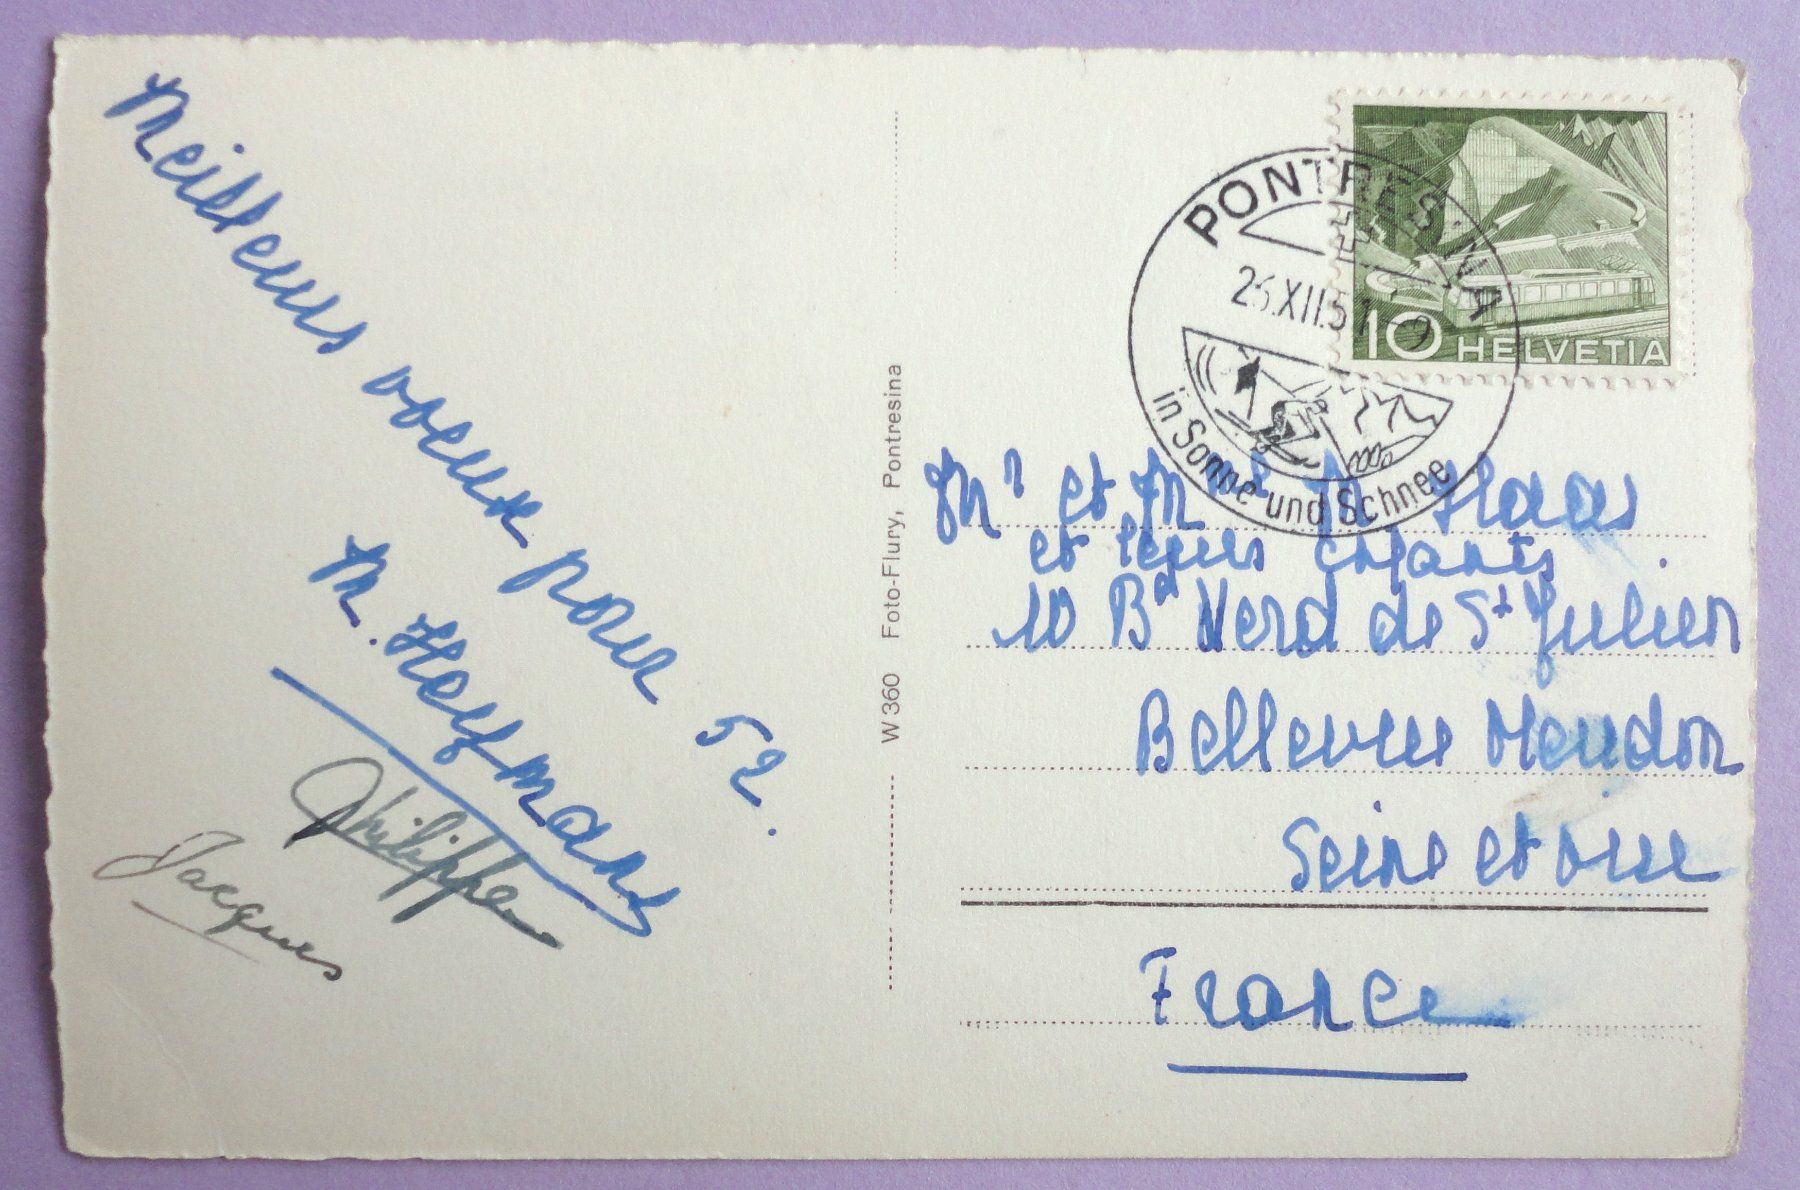 Meilleurs voeux pour 52.
M. Heymans
Philippe
Jacques
W 360 Foto-Flury, Pontresina
PONTRESINA
XII.51
in Sonne und Schnee
10 HELVETIA
Mr et Mme M Haas
et leurs enfants
10 Bd Verd de St Julien
Bellevue Meudon
Seine et oise
France